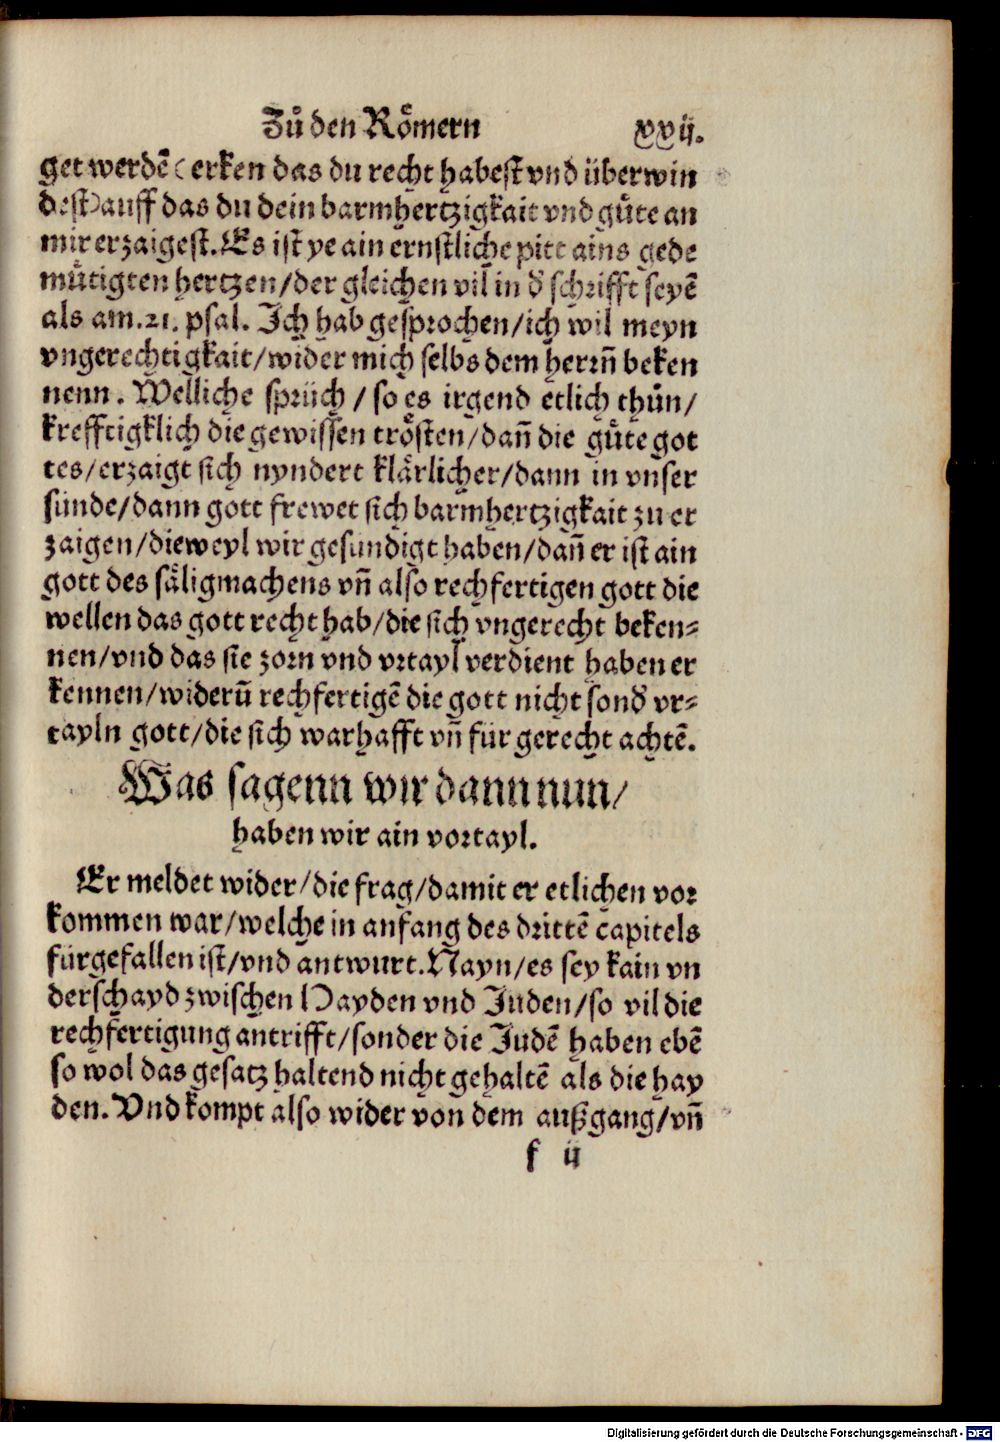 Zů den Rômern xxij.
get werdē (erken das du recht habest vnd überwin
dest) auff das du dein barmhertzigkait vnd gůte an
mir erzaigest. Es ist ye ain ernstliche pitt ains gede
můtigten hertzen/der gleichen vil in d' schrifft seyē
als am .21. psal. Ich hab gesprochen/ich wil meyn
vngerechtigkait/wider mich selbs dem herrn̄ beken
nenn. Welliche sprüch / so es irgend etlich thůn/
krefftigklich die gewissen trôsten/dan̄ die gůte got
tes/erzaigt sich nyndert klärlicher/dann in vnser
sünde/dann gott frewet sich barmhertzigkait zu er
zaigen/dieweyl wir gesündigt haben/dan̄ er ist ain
gott des säligmachens vn̄ also rechfertigen gott die
wellen das gott recht hab/die sich vngerecht beken⸗
nen/vnd das sie zorn vnd vrtayl verdient haben er
kennen/widerū rechfertigē die gott nicht sond' vr⸗
tayln gott/die sich warhafft vn̄ für gerecht achtē.
Was sagenn wir dann nun/
haben wir ain vortayl.
Er meldet wider/die frag/damit er etlichen vor
kommen war/welche in anfang des drittē capitels
fürgefallen ist/vnd antwurt. Nayn/es sey kain vn
derschayd zwischen Hayden vnd Juden/so vil die
rechfertigung antrifft/sonder die Judē haben ebē
so wol das gesatz haltend nicht gehaltē als die hay
den. Vnd kompt also wider von dem außgang/vn̄
f ij
Digitalisierung gefördert durch die Deutsche Forschungsgemeinschaft - DFG